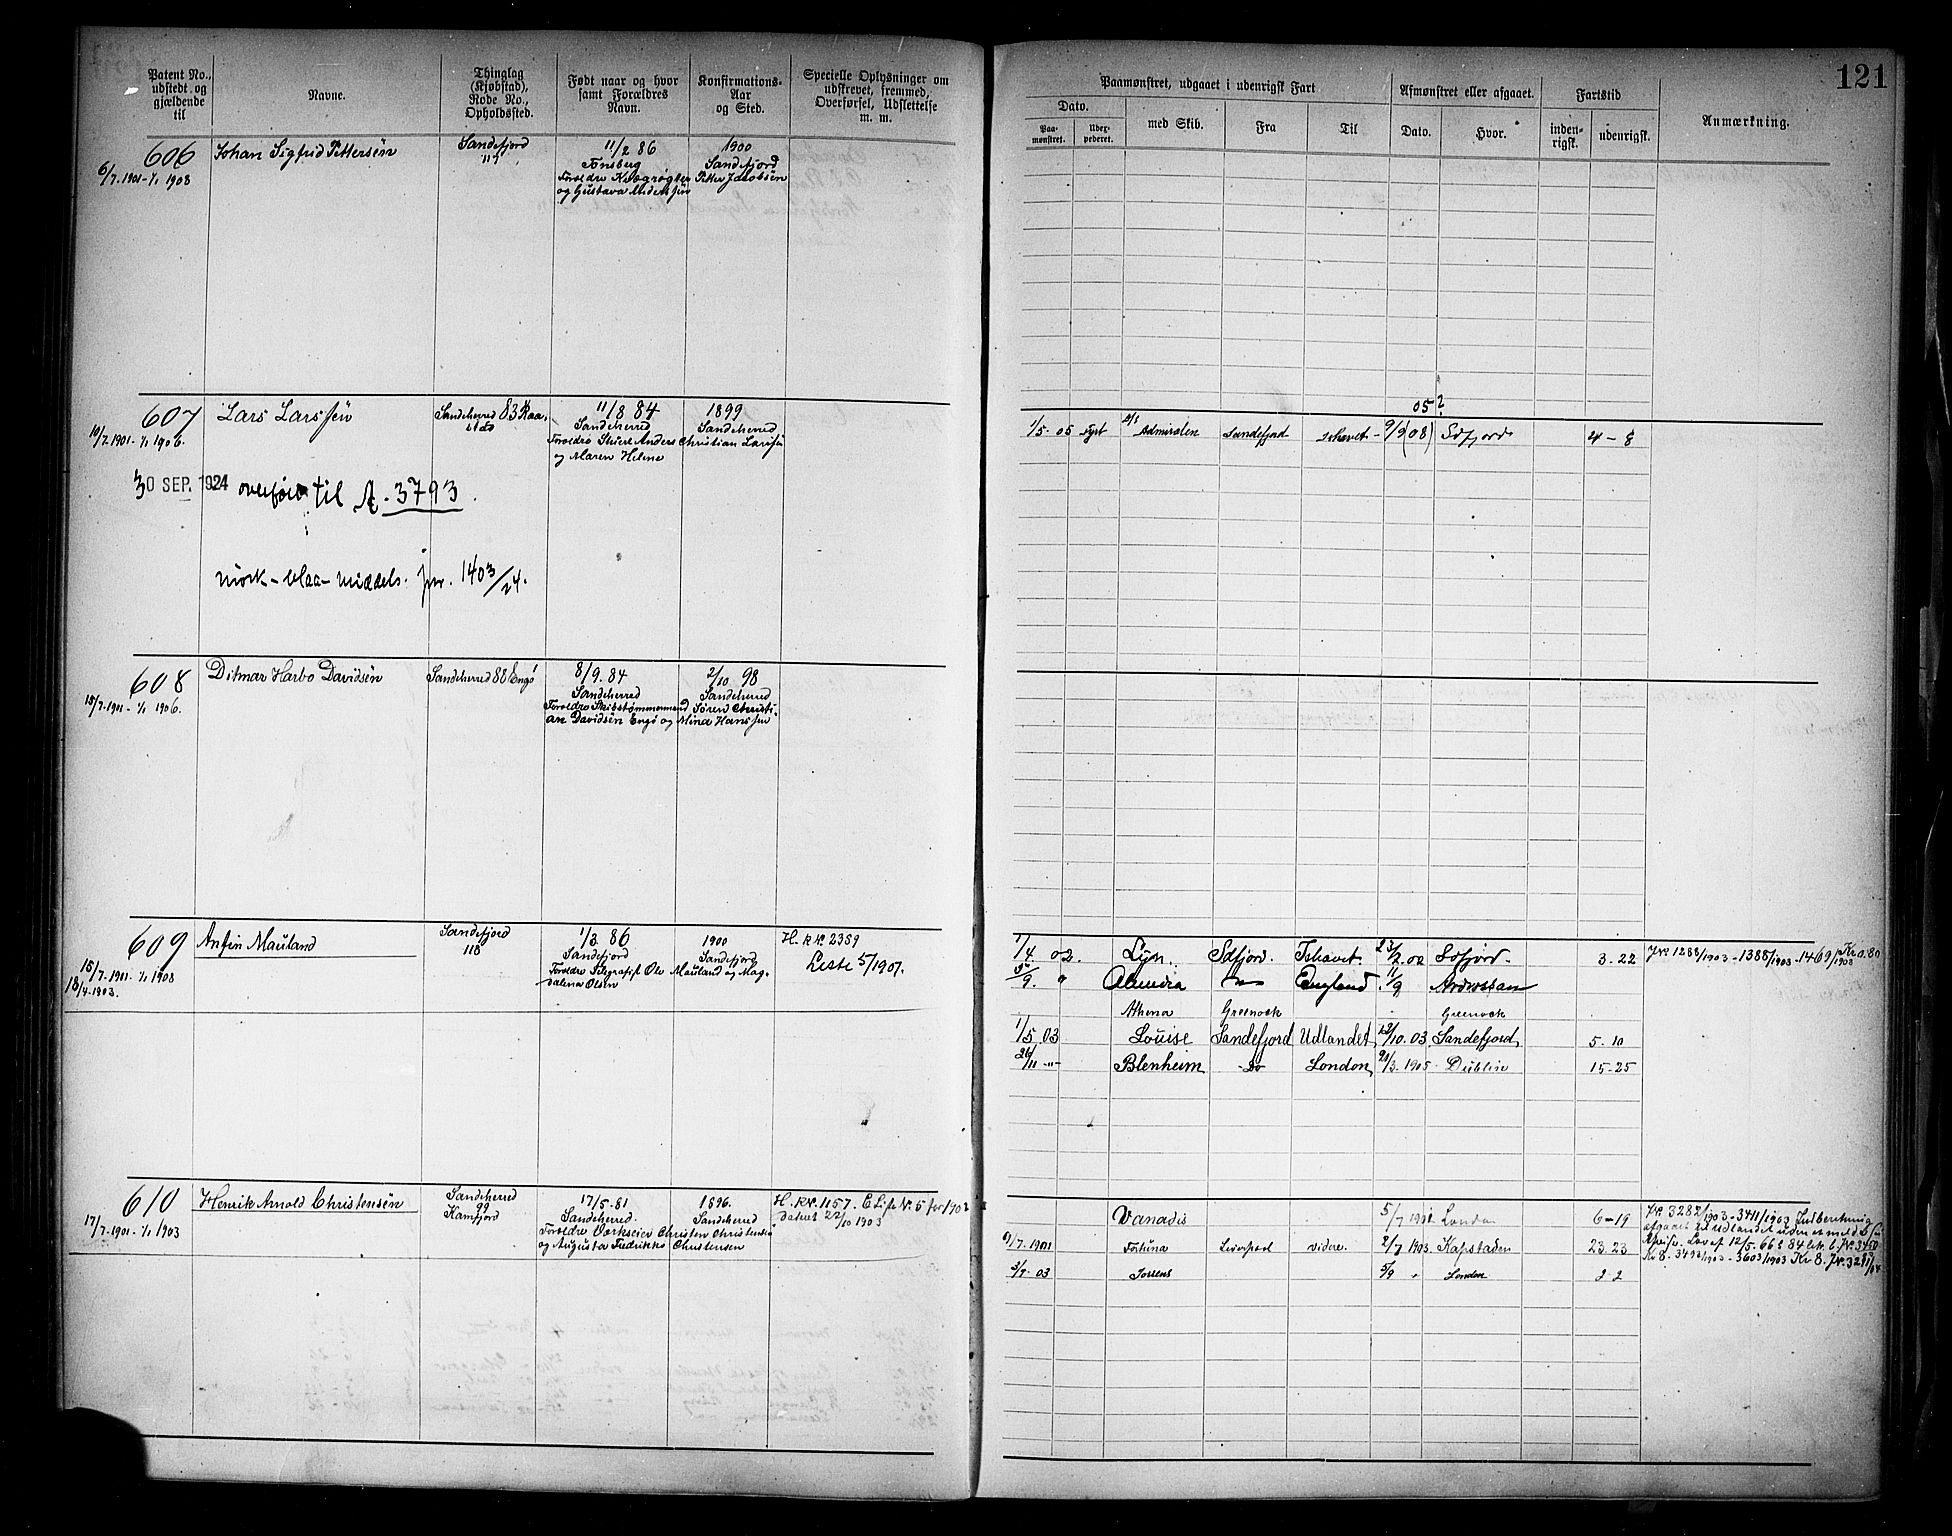 121
Patent No., udstedt og gjældende til
Navne.
Thinglag (Kjøbstad), Rode No., Opholdssted.
Født naar og hvor samt Forældres Navn.
Konfirmations-Aar og Sted.
Specielle Oplysninger om udstrevet, fremmed, Overførsel, Udslettelse m. m.
Paamønstret, udgaaet i udenrigsk Fart
Dato.
Paa-mønstret.
Uder-pederet.
med Skib.
Fra
Til
Afmønstret eller afgaaet.
Dato.
Hvor.
Fartstid
inden-rigsk.
udenrigsk.
Anmærkning.
606
6/7.1901-1/1 1908
Johan Sigfrid Pettersen
Sandefjord
117
11/2 86
Tønsberg
1900
Sandefjord
Forældre Kvægrøgter Petter Jacobsen
og Gustava Anderssen
607
10/7.1901-1/1 1906.
Lars Larssen
Sandeherred 83
11/8 84
Sandeherred
1899
Sandeherred
Forældre Anders Christian Larsen
og Maren Helene
30 SEP. 1924 overført til A. 3793.
mørk-blaa-middels. jnr. 1403/24.
05?
1/5-05 Admiralen Sandefjord Ishavet- 9/9(08) Sdfjord 4-8
608
15/7.1901-1/1 1906.
Ditmar Harbo Davidsen
Sandeherred 88 Engø
8/9.84
Sandeherred
2/10 98
Sandeherred
Forældre Skibstømmermand Søren Christi-
an Davidsen Engø og Mina Hanssen
609
15/7.1901-1/1 1908
18/4.1903.
Anfin Mauland
Sandefjord
118
1/3.86
Sandefjord
1900
Sandefjord
Forældre Telegrafist Ole Mauland og Mag-
dalena Olsen
H. R No 2359
Liste 5/1907.
1/4.02. Lyn. Sdfjord. Ishavet. 23/2.02 Sdfjord. 3-22
JNo 1288/1903-1388/1903-1469/1903 Kr 0.80
5/9. " Almeira England. 11/9 Ardrossan
Athena Greenock Greenock
1/5 03 Louise Sandefjord Udlandet, 12/10.03 Sandefjord, 5-10
26/11 -"- Blenheim Do London, 21/3.1905 Dublin 15-25
610
17/7.1901-1/1 1903
Henrik Arnold Christensen
Sandeherred
99
Kamfjord
17/5.81
Sandeherred.
1896.
Sandeherred
Forældre Værkseier Christen Christensen
og Augusta Fredrikke Christensen
H. RNo. 1157. E Liste No. 5 for 1902
dateret 22/10 1903
Vanadis 5/7 1901 London 6-19
6/7.1901 Fortuna Liverpool videre. 2/7 1903. Kapstaden 23-23
3/7-03 Torrens 5/9 " London 2-2
JNo 3282/1903-3411/1903 Indberetning
afgaaet 2x udlandet uden
Lov af 12/5.66 § 84 litr. b. JNo 3450
Kr 8. 3492/1903-3603/1903 Kr 8.